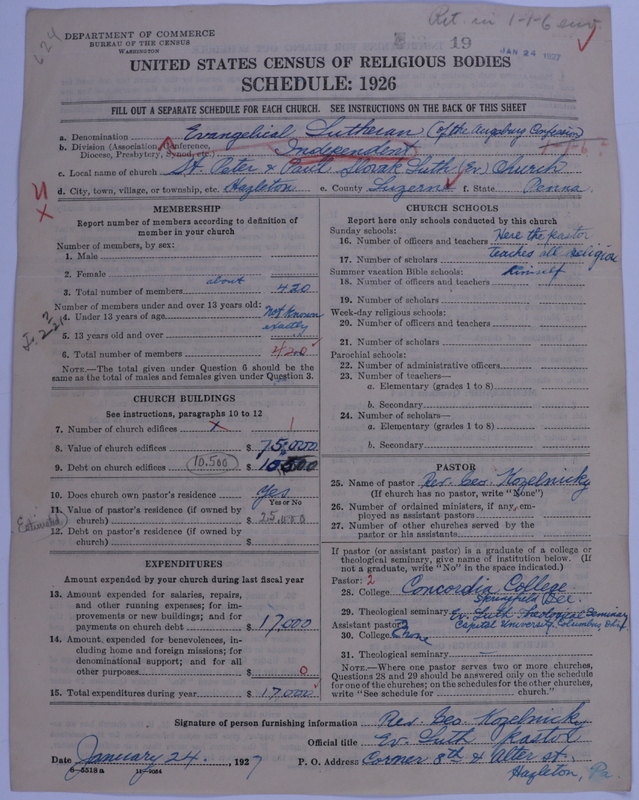 Ret. in 1-1-6 env.
624
DEPARTMENT OF COMMERCE
BUREAU OF THE CENSUS
WASHINGTON
19
JAN 24 1927
UNITED STATES CENSUS OF RELIGIOUS BODIES
SCHEDULE: 1926
FILL OUT A SEPARATE SCHEDULE FOR EACH CHURCH. SEE INSTRUCTIONS ON THE BACK OF THIS SHEET
a. Denomination Evangelical Lutheran (of the Augsburg Confession)
b. Division (Association, Conference, Diocese, Presbytery, Synod, etc.) Independent 1-1-6
c. Local name of church St. Peter & Paul Slovak Luth (Ev) Church
d. City, town, village, or township, etc. Hazleton e. County Luzerne f. State Penna
MEMBERSHIP
Report number of members according to definition of
member in your church
Number of members, by sex:
1. Male
2. Female
3. Total number of members about 420
Number of members under and over 13 years old:
4. Under 13 years of age Not known
exactly
5. 13 years old and over
6. Total number of members 420
NOTE.—The total given under Question 6 should be
the same as the total of males and females given under Question 3.
CHURCH BUILDINGS
See instructions, paragraphs 10 to 12
7. Number of church edifices x 1
8. Value of church edifices $ 75,000
9. Debt on church edifices (10.500) $ 10500
10. Does church own pastor's residence Yes
Yes or No
11. Value of pastor's residence (if owned by
Estimated church) $ 25,000
12. Debt on pastor's residence (if owned by
church) $
EXPENDITURES
Amount expended by your church during last fiscal year
13. Amount expended for salaries, repairs,
and other running expenses; for im-
provements or new buildings; and for
payments on church debt $ 17,000
14. Amount expended for benevolences, in-
cluding home and foreign missions; for
denominational support; and for all
other purposes $ 0
15. Total expenditures during year $ 17,000
CHURCH SCHOOLS
Report here only schools conducted by this church
Sunday schools:
16. Number of officers and teachers Here the pastor
17. Number of scholars teaches all religion
Summer vacation Bible schools: himself
18. Number of officers and teachers
19. Number of scholars
Week-day religious schools:
20. Number of officers and teachers
21. Number of scholars
Parochial schools:
22. Number of administrative officers
23. Number of teachers—
a. Elementary (grades 1 to 8)
b. Secondary
24. Number of scholars—
a. Elementary (grades 1 to 8)
b. Secondary
PASTOR
25. Name of pastor Rev. Geo. Kozelnicky
(If church has no pastor, write "None")
26. Number of ordained ministers, if any, em-
ployed as assistant pastors
27. Number of other churches served by the
pastor or his assistants
If pastor (or assistant pastor) is a graduate of a college or
theological seminary, give name of institution below. (If
not a graduate, write "No" in the space indicated.)
Pastor: 2
28. College Concordia College
Springfield, Ill.
29. Theological seminary Ev. Luth Theological Seminary
Assistant pastor: Capital University, Columbus, Ohio
30. College None
31. Theological seminary
NOTE.—Where one pastor serves two or more churches,
Questions 28 and 29 should be answered only on the schedule
for one of the churches; on the schedules for the other churches,
write "See schedule for church."
Signature of person furnishing information Rev. Geo. Kozelnicky
Official title Ev. Luth pastor
Date January 24, 1927 P. O. Address Corner 8th & Alter st.
6-5518a Hazleton, Pa.